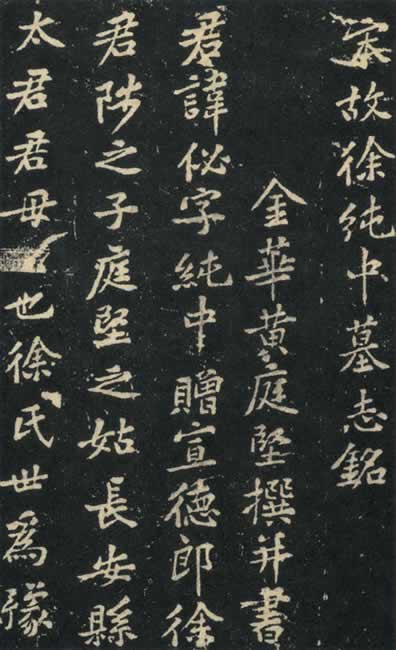 宋故徐純中墓志銘
金華黃庭堅撰并書
君諱佖字純中贈宣德郎徐
君陟之子庭堅之姑長安縣
太君君母也徐氏世為豫